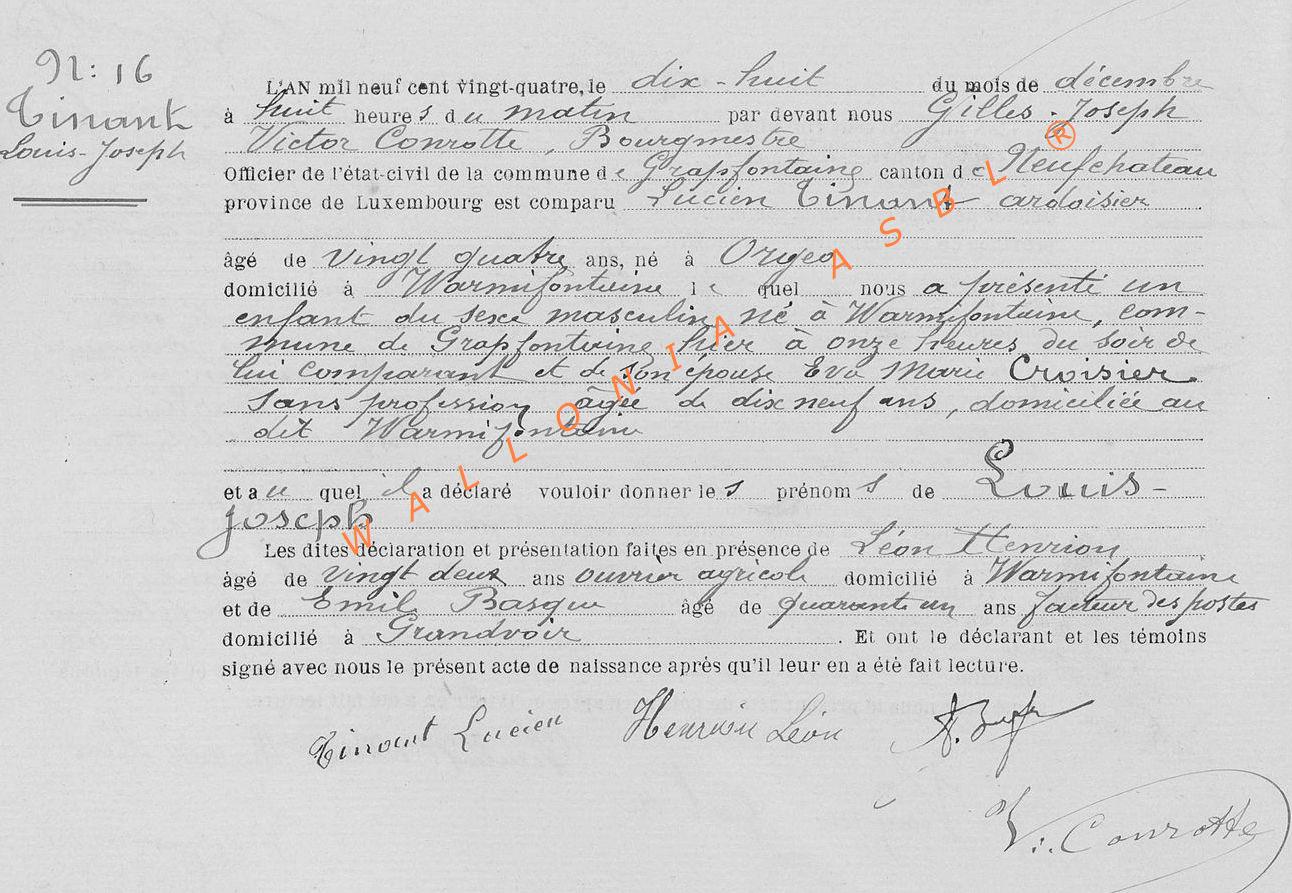 N: 16
Tinant
Louis-Joseph
L'AN mil neuf cent vingt-quatre, le dix-huit du mois de décembre
à huit heures du matin par devant nous Gilles-Joseph
Victor Conrotte, Bourgmestre
Officier de l'état-civil de la commune de Grapfontaine canton de Neufchateau
province de Luxembourg est comparu Lucien Tinant ardoisier
âgé de vingt quatre ans, né à Orgeo
domicilié à Warmifontaine le quel nous a présenté un
enfant du sexe masculin né à Warmifontaine, com-
mune de Grapfontaine hier à onze heures du soir de
lui comparant et de son épouse Eva Marie Croisier
sans profession âgée de dix neuf ans, domiciliée au
dit Warmifontaine
et au quel il a déclaré vouloir donner les prénoms de Louis-
Joseph
Les dites déclaration et présentation faites en présence de Léon Henrion
âgé de vingt deux ans ouvrier agricole domicilié à Warmifontaine
et de Emile Basque âgé de quarante un ans facteur des postes
domicilié à Grandvoir. Et ont le déclarant et les témoins
signé avec nous le présent acte de naissance après qu'il leur en a été fait lecture.
Tinant Lucien Henrion Léon
V. Conrotte
WALLONIA ASBL ®